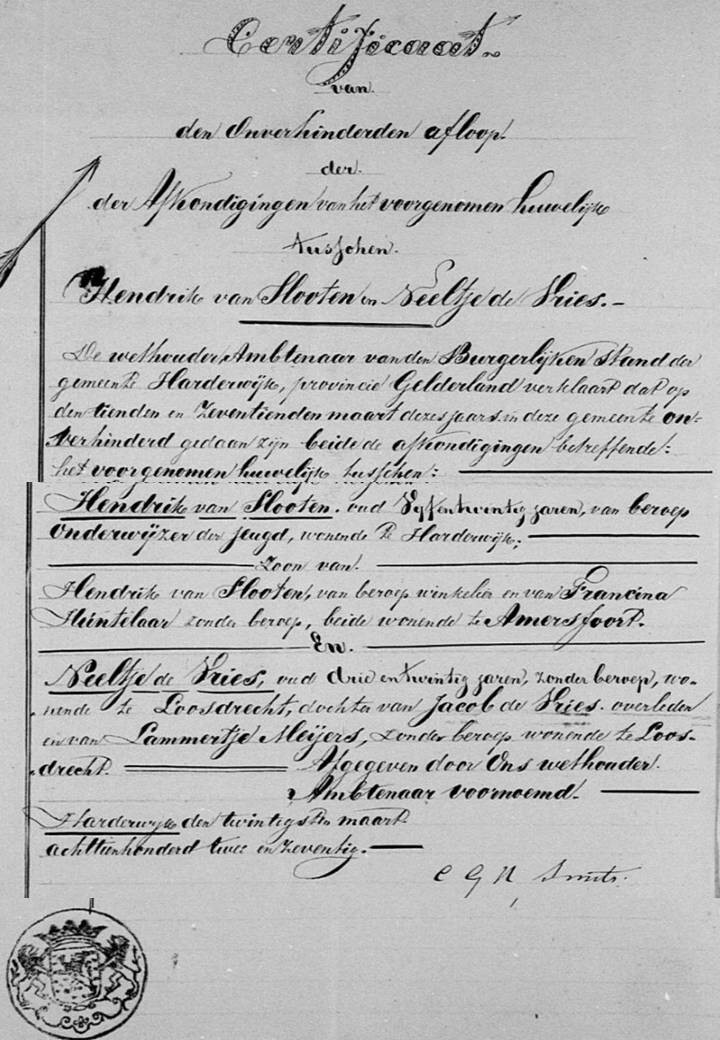 Certificaat.
van
den Onverhinderden afloop.
der
der Afkondigingen van het voorgenomen huwelijk
tusschen.
Hendrik van Slooten en Neeltje de Vries. –
De wethouder, Ambtenaar van den Burgerlijken stand der
gemeente Harderwijk, provincie Gelderland verklaart dat op
den tienden en Zeventienden maart dezes jaars in deze gemeente on-
verhinderd gedaan zijn beide de afkondigingen betreffende:
het voorgenomen huwelijk tusschen:
Hendrik van Slooten, oud Vyfentwintig jaren, van beroep
Onderwijzer der jeugd, wonende te Harderwijk;
Zoon van.
Hendrik van Slooten, van beroep winkelier en van Francina
Huntelaar zonder beroep, beide wonende te Amersfoort.
En.
Neeltje de Vries, oud drie entwintig jaren, zonder beroep, wo-
nende te Loosdrecht, dochter van Jacob de Vries. overleden
en van Lammertje Meijers, zonder beroep wonende te Loos-
drecht. Afgegeven door Ons wethouder.
Ambtenaar voornoemd.
Harderwijk den twintigsten maart
achttienhonderd twee en zeventig.
C G N Smits.